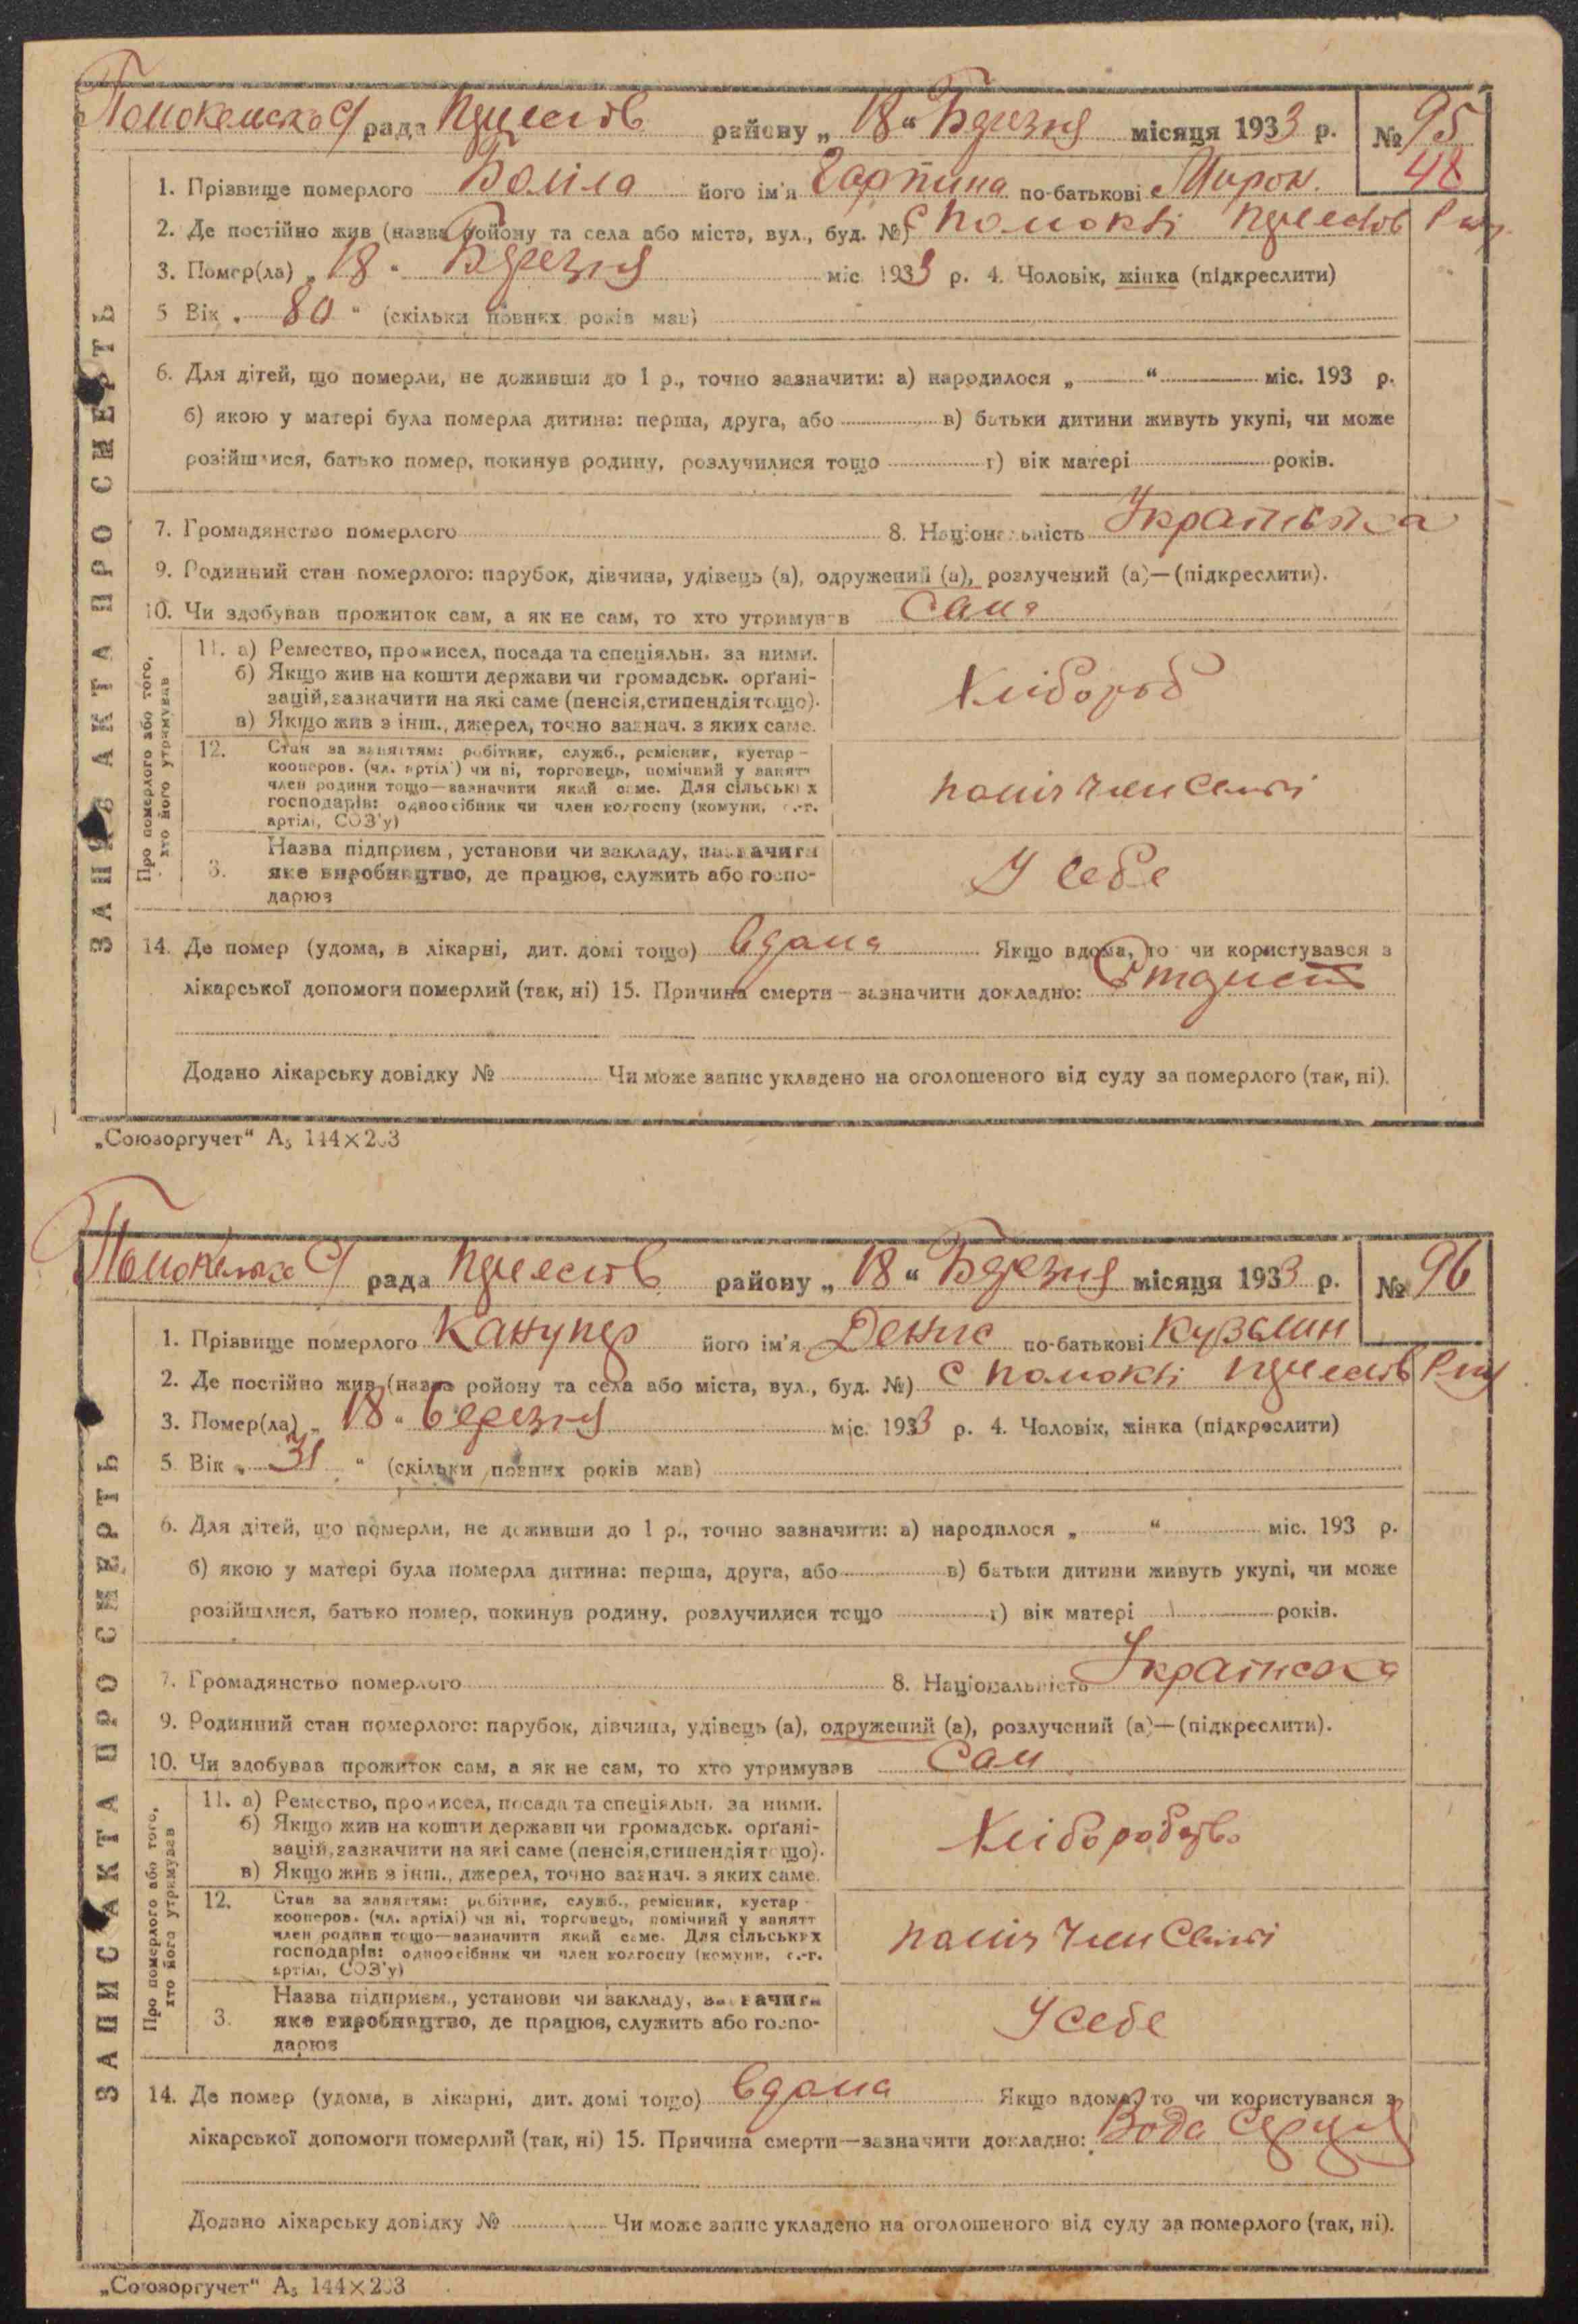 рада района „ 18 “ Березня місяця 1933 р. № 95
48
1. Прізвище померлого його ім'я по-батькові Мирон.
2. Де постійно жив (назва ройону та села або міста, вул., буд. №) с
3. Помер(ла) „ 18 “ Березня міс. 1933 р. 4. Чоловік, жінка (підкреслити)
5 Вік „ 80 “ (скільки повних років мав)
6. Для дітей, що померли, не доживши до 1 р., точно зазначити: а) народилося „ “ міс. 193 р.
б) якою у матері була померла дитина: перша, друга, або в) батьки дитини живуть укупі, чи може
розійшлися, батько помер, покинув родину, розлучилися тощо г) вік матері років.
7. Громадянство померлого 8. Національність Українська
9. Родинний стан померлого: парубок, дівчина, удівець (а), одружений (а), розлучений (а)—(підкреслити).
10. Чи здобував прожиток сам, а як не сам, то хто утримував Сама
11. а) Ремество, промисел, посада та спеціяльн. за ними.
б) Якщо жив на кошти держави чи громадськ. орґані-
зацій, зазначити на які саме (пенсія, стипендія тощо).
в) Якщо жив з інш., джерел, точно зазнач. з яких саме.
Хлібороб
12. Стан за заняттям: робітник, служб., ремісник, кустар-
кооперов. (чл. артілі) чи ні, торговець, помічний у занятт
член родини тощо—зазначити який саме. Для сільських
господарів: одноосібник чи член колгоспу (комуни, с.-г.
артілі, СОЗ'у)
член
3. Назва підприєм., установи чи закладу, зазначити
яке виробництво, де працює, служить або госпо-
дарює
У себе
14. Де помер (удома, в лікарні, дит. домі тощо) вдома Якщо вдома, то чи користувався з
лікарської допомоги померлий (так, ні) 15. Причина смерти—зазначити докладно:
Додано лікарську довідку № Чи може запис укладено на оголошеного від суду за померлого (так, ні).
ЗАПИС АКТА ПРО СМЕРТЬ
Про померлого або того,
хто його утримував
„Союзоргучет“ А₅ 144×203
рада району „ 18 “ Березня місяця 1933 р. № 96
1. Прізвище померлого Канупер його ім'я Денис по-батькові Кузьмин
2. Де постійно жив (назва ройону та села або міста, вул., буд. №) с
3. Помер(ла) „ 18 “ березня міс. 1933 р. 4. Чоловік, жінка (підкреслити)
5 Вік „ 31 “ (скільки повних років мав)
6. Для дітей, що померли, не доживши до 1 р., точно зазначити: а) народилося „ “ міс. 193 р.
б) якою у матері була померла дитина: перша, друга, або в) батьки дитини живуть укупі, чи може
розійшлися, батько помер, покинув родину, розлучилися тощо г) вік матері років.
7. Громадянство померлого 8. Національність Українська
9. Родинний стан померлого: парубок, дівчина, удівець (а), одружений (а), розлучений (а)—(підкреслити).
10. Чи здобував прожиток сам, а як не сам, то хто утримував Сам
11. а) Ремество, промисел, посада та спеціяльн. за ними.
б) Якщо жив на кошти держави чи громадськ. орґані-
зацій, зазначити на які саме (пенсія, стипендія тощо).
в) Якщо жив з інш., джерел, точно зазнач. з яких саме.
Хліборобство
12. Стан за заняттям: робітник, служб., ремісник, кустар-
кооперов. (чл. артілі) чи ні, торговець, помічний у занятт
член родини тощо—зазначити який саме. Для сільських
господарів: одноосібник чи член колгоспу (комуни, с.-г.
артілі, СОЗ'у)
член
3. Назва підприєм., установи чи закладу, зазначити
яке виробництво, де працює, служить або госпо-
дарює
У себе
14. Де помер (удома, в лікарні, дит. домі тощо) вдома Якщо вдома, то чи користувався з
лікарської допомоги померлий (так, ні) 15. Причина смерти—зазначити докладно: Вода серця
Додано лікарську довідку № Чи може запис укладено на оголошеного від суду за померлого (так, ні).
ЗАПИС АКТА ПРО СМЕРТЬ
Про померлого або того,
хто його утримував
„Союзоргучет“ А₅ 144×203